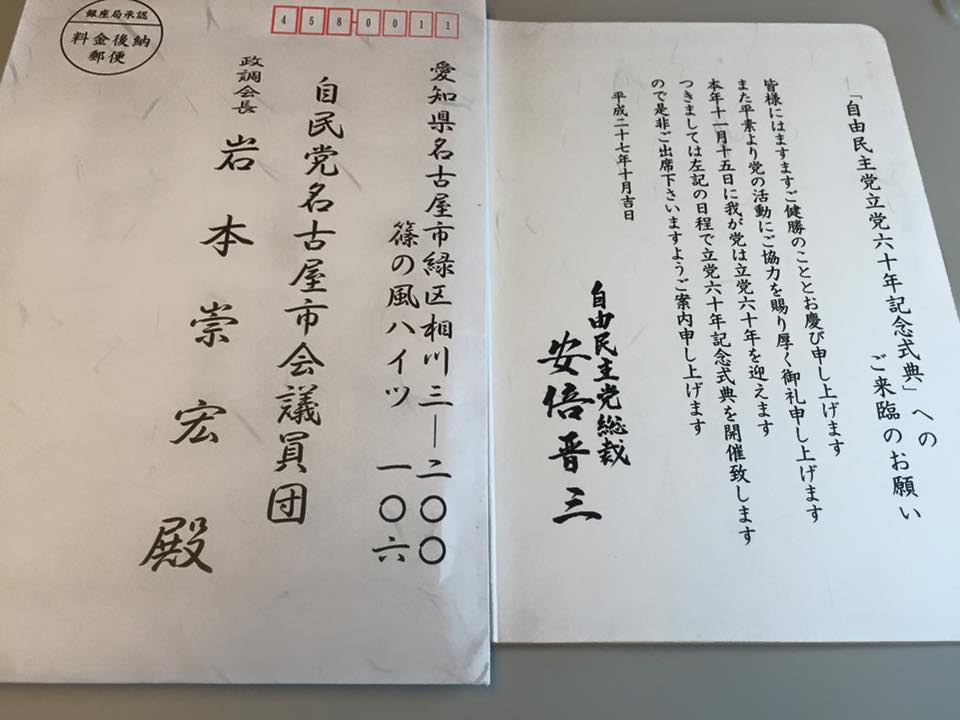 銀座局承認
料金後納
郵便
4580011
愛知県名古屋市緑区相川三―二〇〇
篠の風ハイツ 一〇六
自民党名古屋市会議員団
政調会長
岩本崇宏殿
「自由民主党立党六十年記念式典」への
ご来臨のお願い
皆様にはますますご健勝のこととお慶び申し上げます
また平素より党の活動にご協力を賜り厚く御礼申し上げます
本年十一月十五日に我が党は立党六十年を迎えます
つきましては左記の日程で立党六十年記念式典を開催致します
ので是非ご出席下さいますようご案内申し上げます
平成二十七年十月吉日
自由民主党総裁
安倍晋三